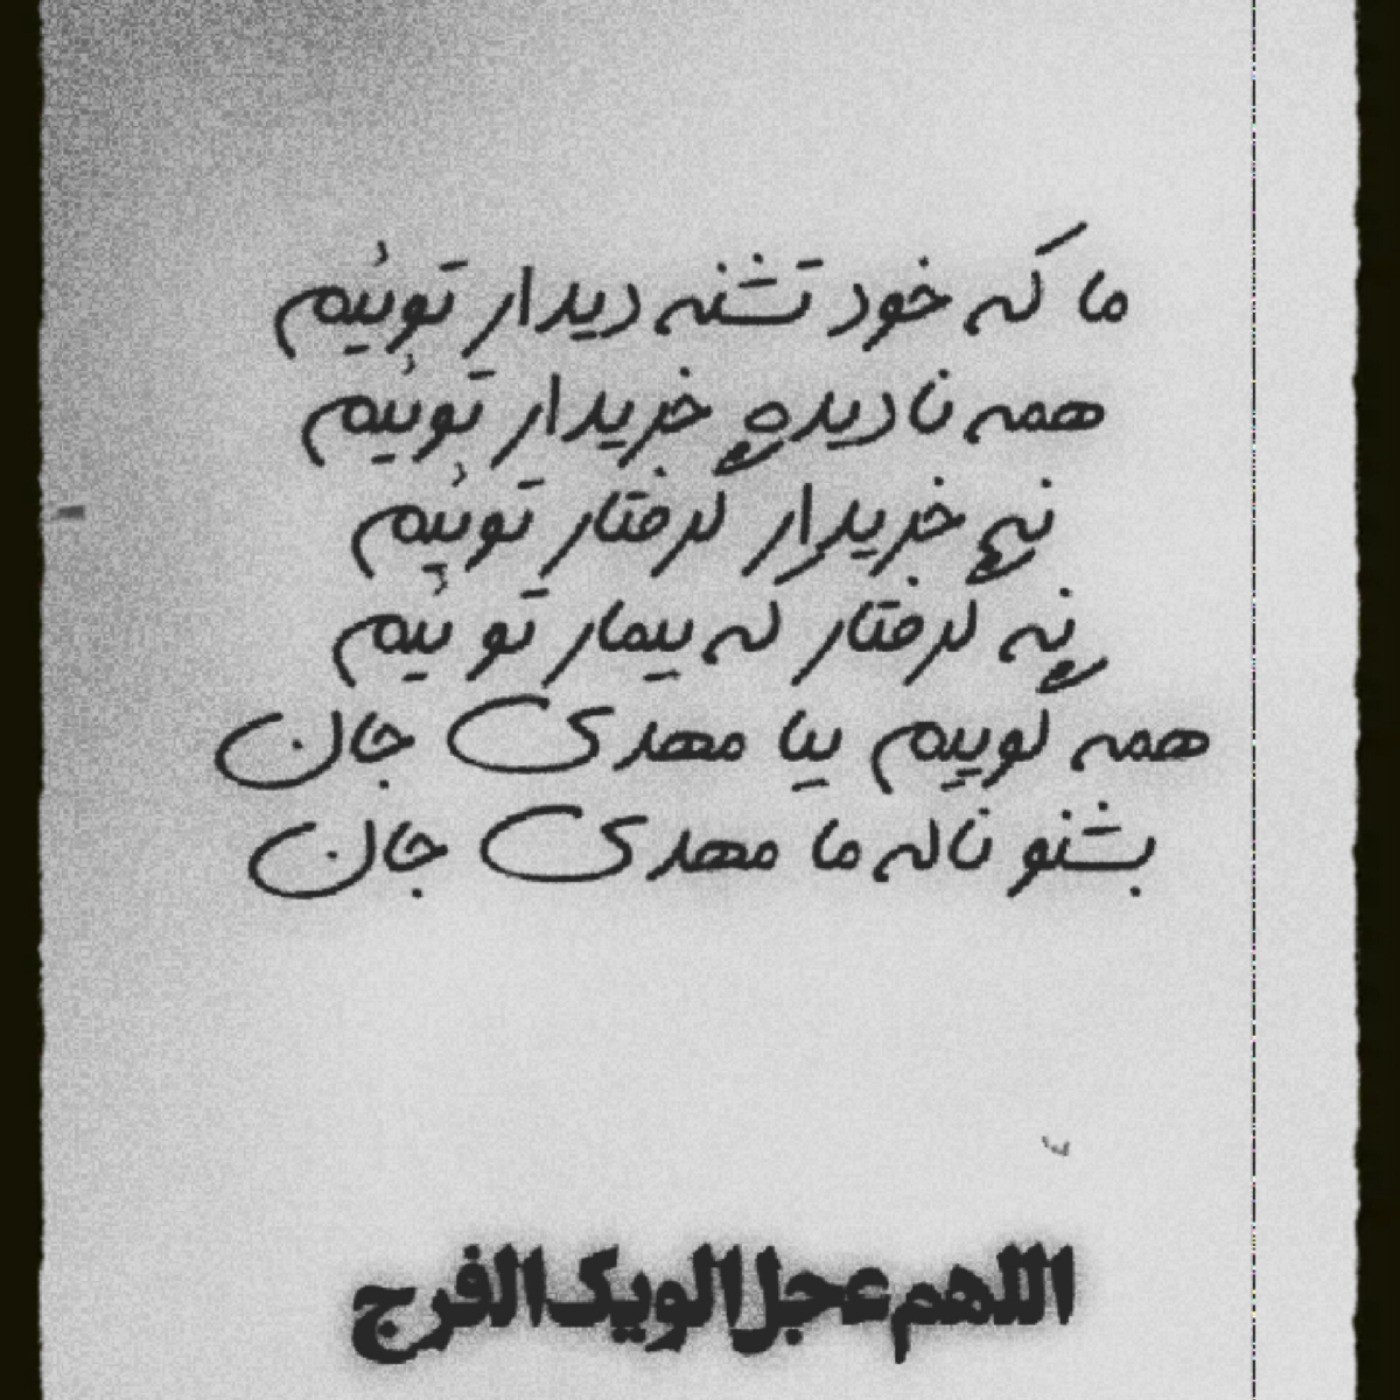 ما که خود تشنه دیدار توئیم
همه نادیده خریدار توئیم
نه خریدار گرفتار توئیم
نه گرفتار که بیمار تو ئیم
همه گوییم بیا مهدی جان
بشنو ناله ما مهدی جان
اللهم عجل الویک الفرج